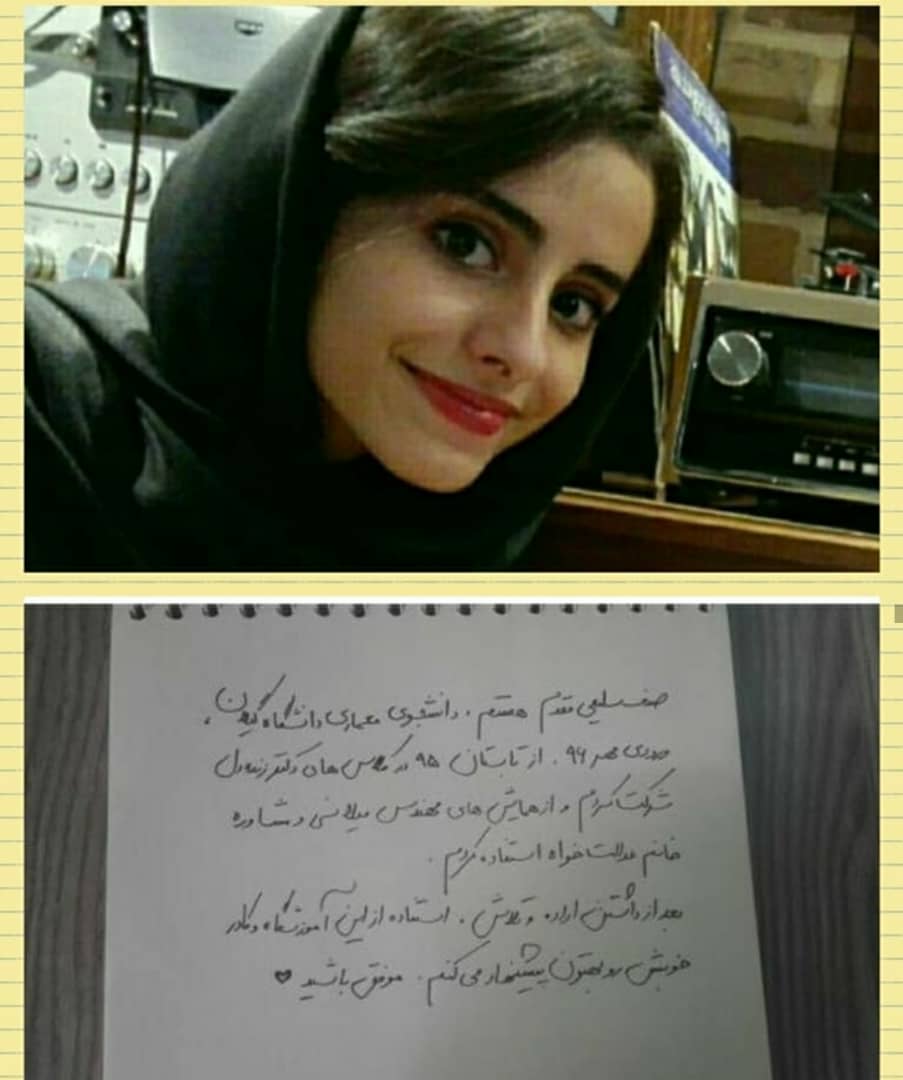 سلیمی مقدم هستم ، دانشجوی معماری دانشگاه گیلان ،
ورودی مهر ۹۶ . از تابستان ۹۵ در کلاس های دکتر زنده دل
شرکت کردم و از همایش های مهندس میلانی و مشاوره
خانم عدالت خواه استفاده کردم .
بعد از داشتن اراده و تلاش ، استفاده از این آموزشگاه و کادر
خوبش رو بهتون پیشنهاد می کنم . موفق باشید ♥